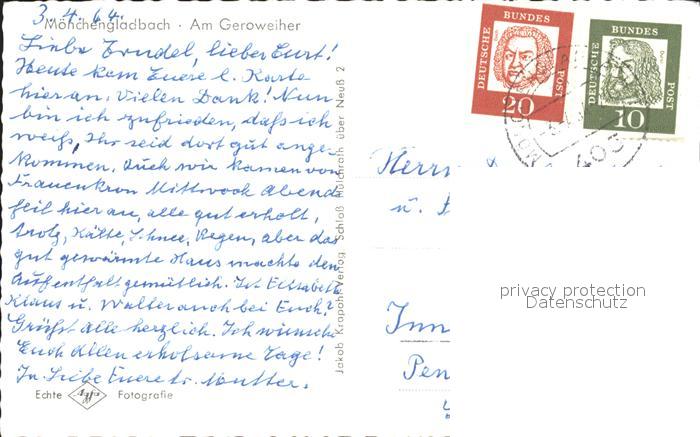 3.1.64.
Mönchengladbach · Am Geroweiher
Liebe Trudel, lieber Curt!
Heute kam Euere l. Karte
hier an. Vielen Dank! Nun
bin ich zufrieden, daß ich
weiß, Ihr seid dort gut ange-
kommen. Auch wir kamen von
Frauenkron Mittwoch Abend
heil hier an, alle gut erholt,
trotz, Kälte, Schnee, Regen, aber das
gut gewärmte Haus machte den
Aufenthalt gemütlich. Ist Elisabeth
Klaus u. Walter auch bei Euch?
Grüßt alle herzlich. Ich wünsche
Euch allen erholsame Tage!
In Liebe Euere tr. Mutter.
Echte Agfa Fotografie
Jakob Krapohl-Verlag Schloß Hülchrath über Neuß 2
DEUTSCHE BUNDES POST
20
DEUTSCHE BUNDES POST
Dürer
10
405
Herrn
u.
Inn
Pen
privacy protection
Datenschutz